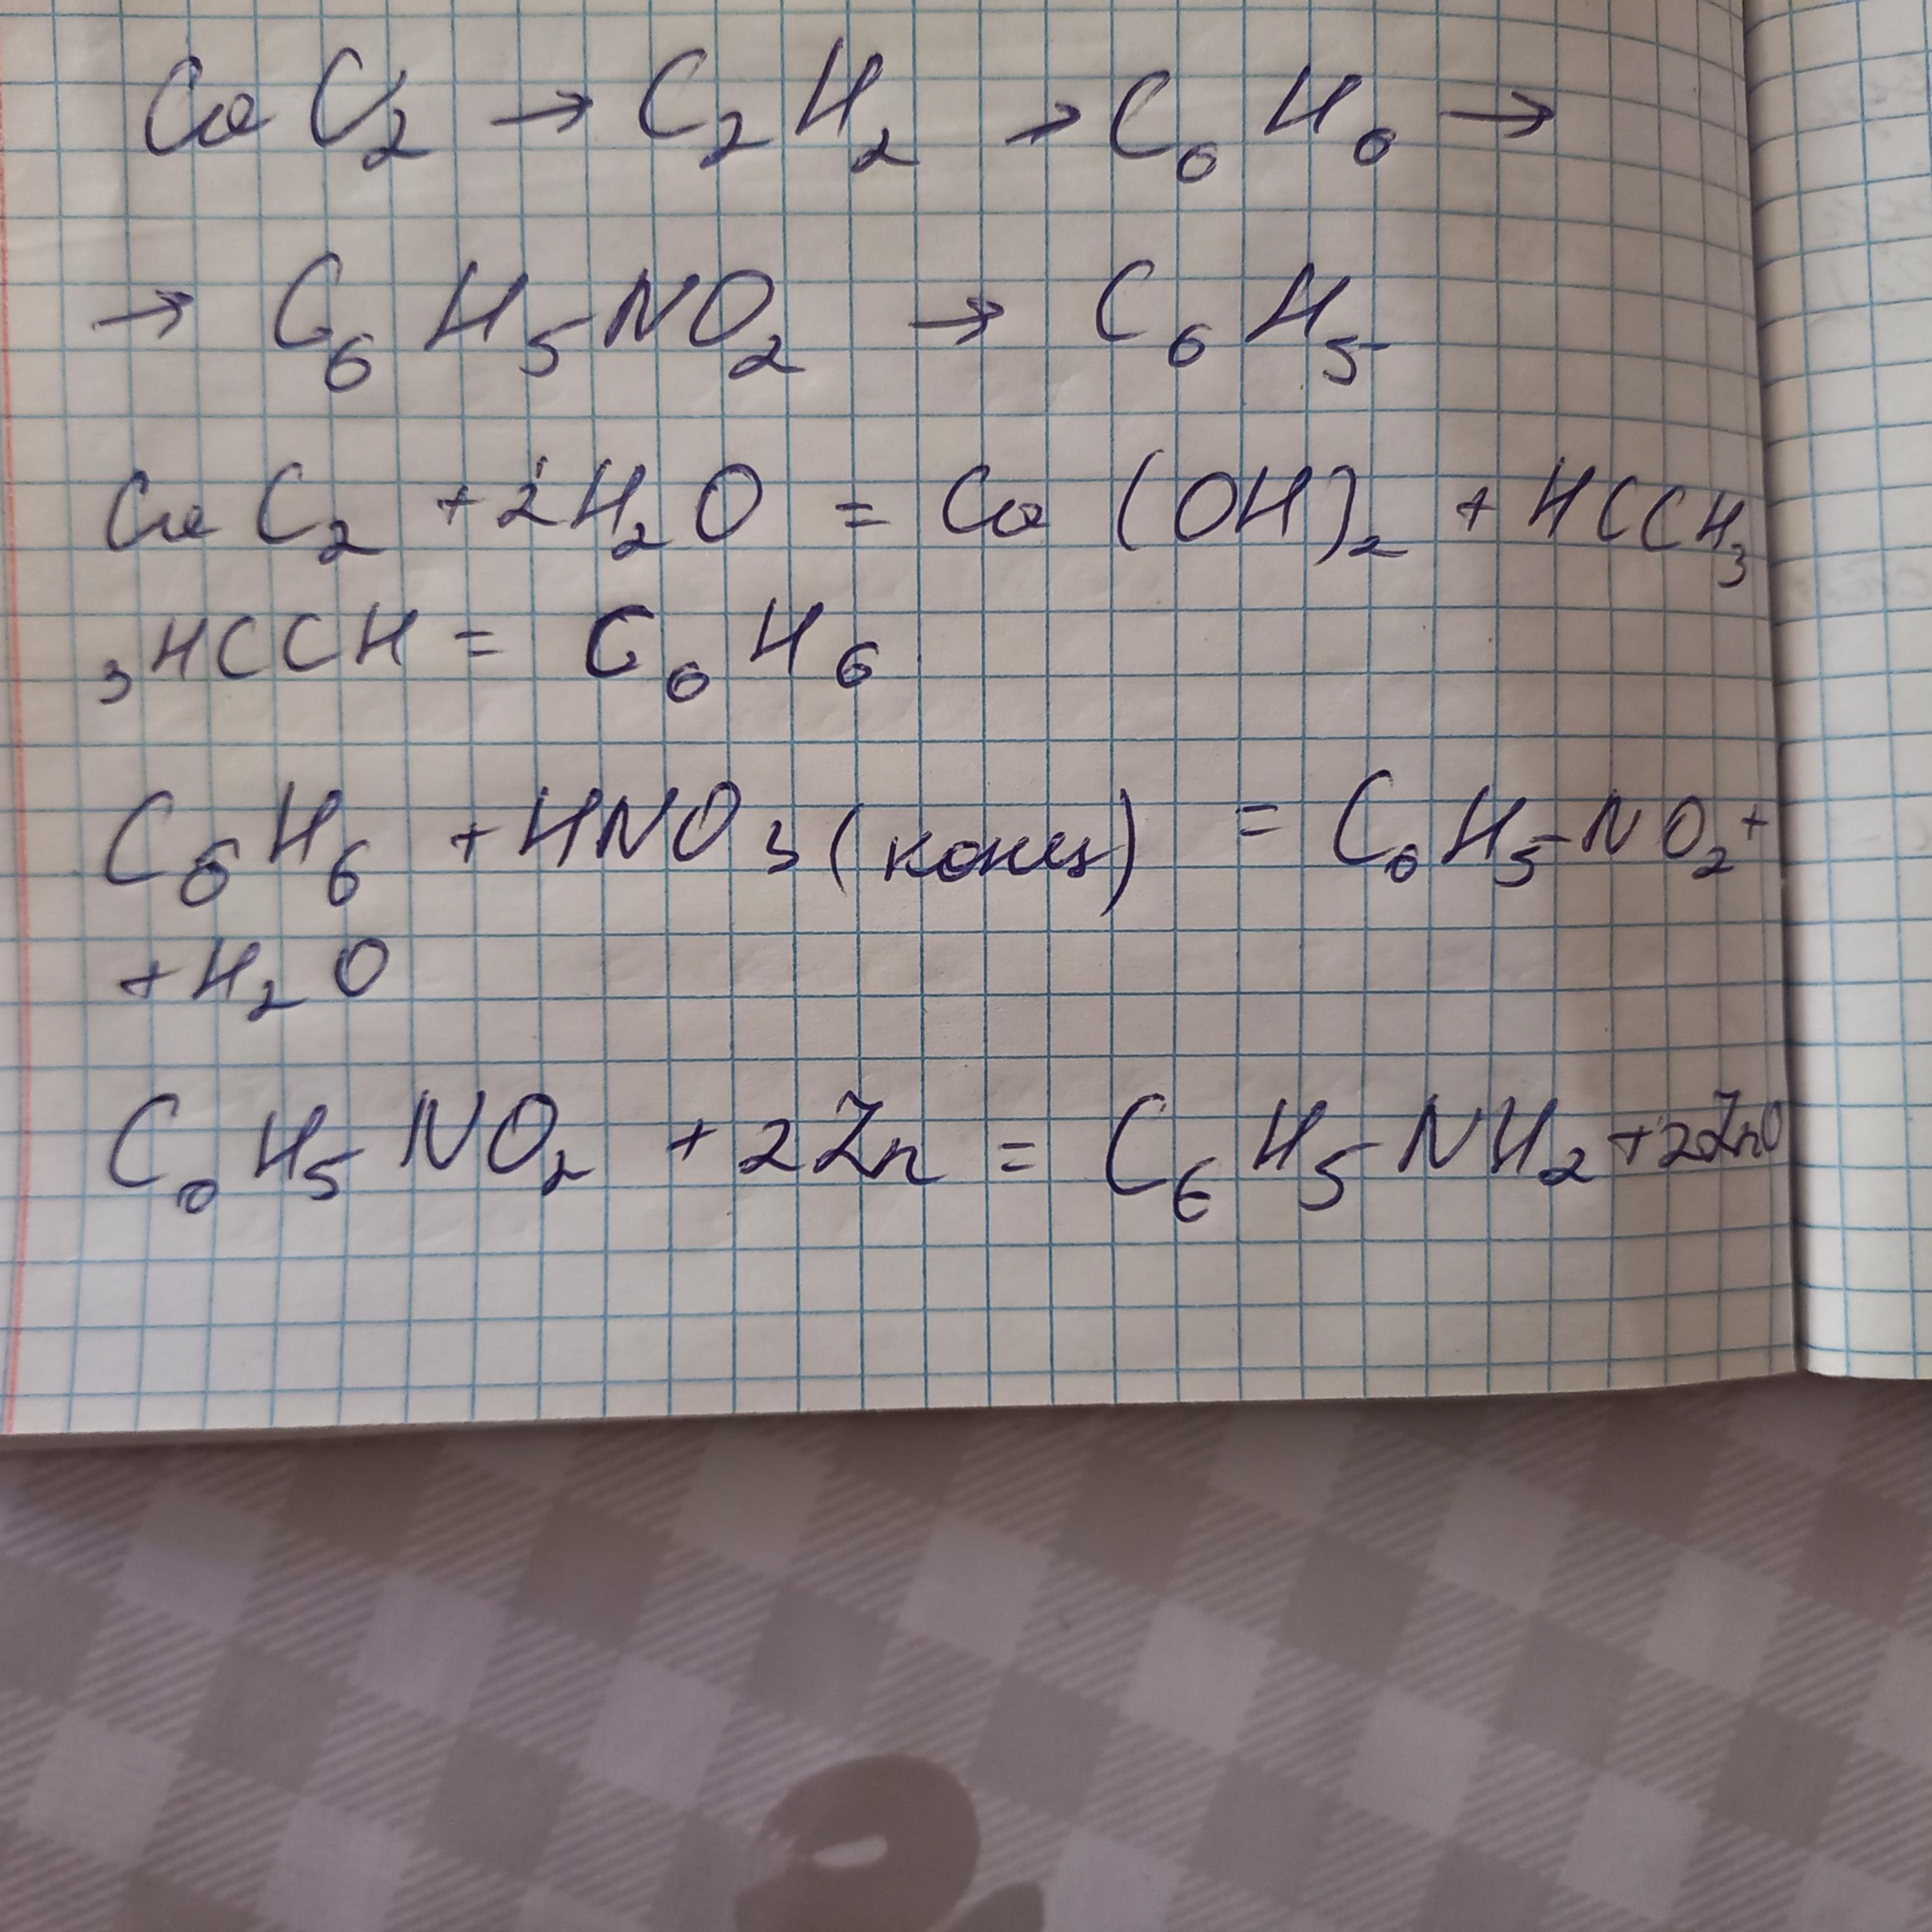 CaC₂ → C₂H₂ → C₆H₆ →
→ C₆H₅NO₂ → C₆H₅
CaC₂ + 2H₂O = Ca(OH)₂ + HCCH₃
₃HCCH = C₆H₆
C₆H₆ + HNO₃(конц) = C₆H₅NO₂ +
+ H₂O
C₆H₅NO₂ + 2Zn = C₆H₅NH₂ + 2ZnO